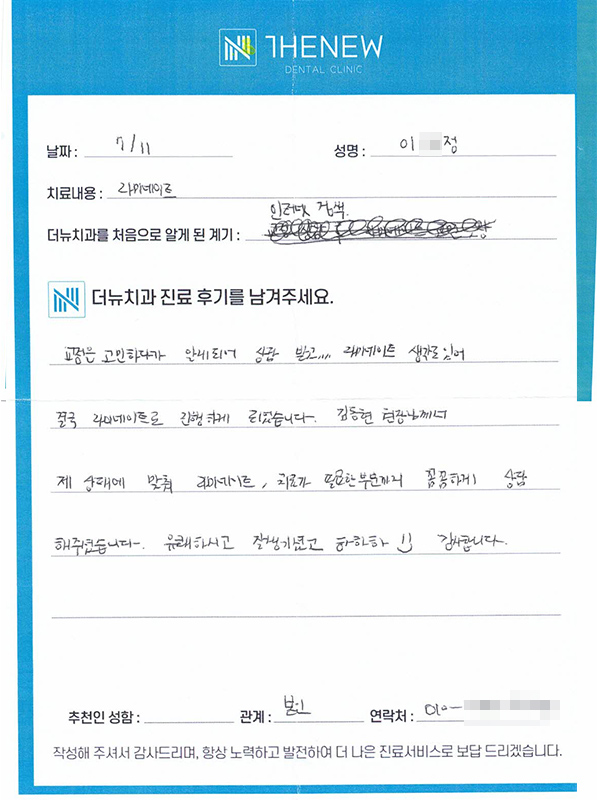 THENEW
DENTAL CLINIC
날짜 : 7/11 성명 : 이 정
치료내용 : 라미네이트
인터넷 검색.
더뉴치과를 처음으로 알게 된 계기 :
더뉴치과 진료 후기를 남겨주세요.
교정은 고민하다가 안내되어 상담 받고.... 라미네이트 생각도 있어
결국 라미네이트로 진행하게 되었습니다. 김동현 원장님께서
제 상태에 맞춰 라미네이트, 치료가 필요한부분까지 꼼꼼하게 상담
해주셨습니다. 유쾌하시고 잘생기셨고 하하하 감사합니다.
추천인 성함 : 관계 : 본인 연락처 : 010-
작성해 주셔서 감사드리며, 항상 노력하고 발전하여 더 나은 진료서비스로 보답 드리겠습니다.